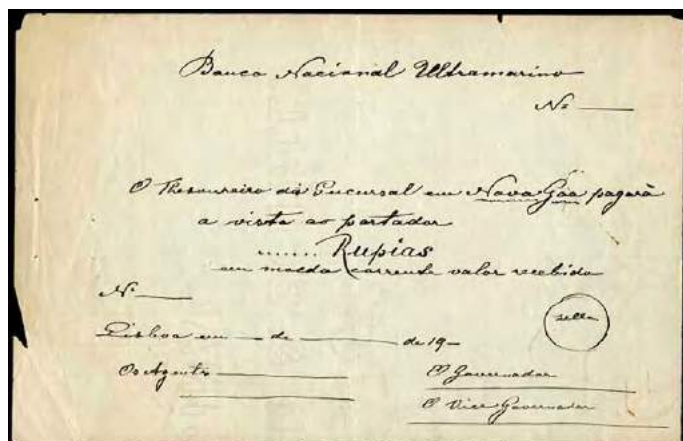 Banco Nacional Ultramarino
Nº
O Thesoureiro da Sucursal em Nova Gôa pagará
a vista ao portador
...... Rupias
em moeda corrente valor recebido
Nº
sello
Lisboa em — de — de 19—
Os Agents
O Governador
O Vice Governador